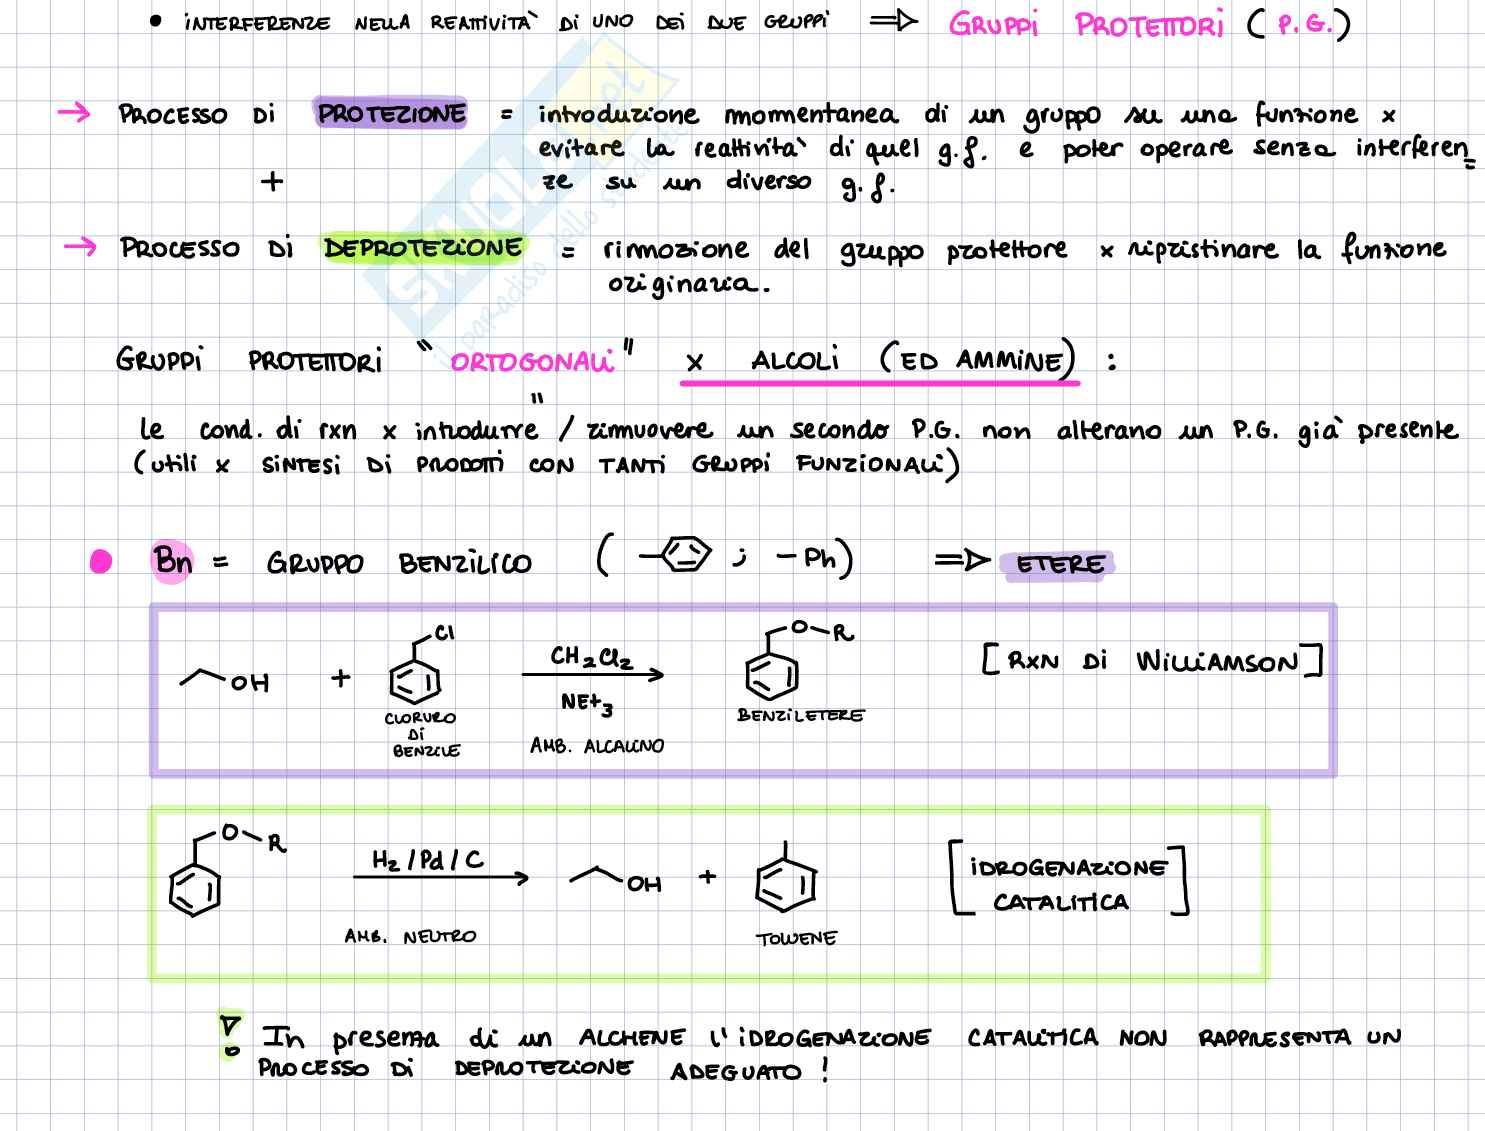 • INTERFERENZE NELLA REATTIVITÀ DI UNO DEI DUE GRUPPI ⇒ GRUPPI PROTETTORI (P.G.)
→ PROCESSO DI PROTEZIONE = introduzione momentanea di un gruppo su una funzione x
evitare la reattività di quel g.f. e poter operare senza interferen
+ ze su un diverso g.f.
→ PROCESSO DI DEPROTEZIONE = rimozione del gruppo protettore x ripristinare la funzione
originaria.
GRUPPI PROTETTORI "ORTOGONALI" x ALCOLI (ED AMMINE) :
"
le cond. di rxn x introdurre / rimuovere un secondo P.G. non alterano un P.G. già presente
(utili x SINTESI DI PRODOTTI CON TANTI GRUPPI FUNZIONALI)
• Bn = GRUPPO BENZILICO ( ; -Ph) ⇒ ETERE
OH + Cl CH2Cl2 O R [RXN DI WILLIAMSON]
NEt3
CLORURO
DI
BENZILE
BENZILETERE
AMB. ALCALINO
O R H2/Pd/C OH + [IDROGENAZIONE
CATALITICA]
AMB. NEUTRO TOLUENE
! In presenza di un ALCHENE l'IDROGENAZIONE CATALITICA NON RAPPRESENTA UN
PROCESSO DI DEPROTEZIONE ADEGUATO!
SKUOLA.net
il paradiso dello studente